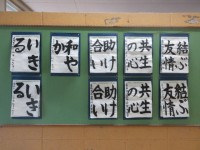 結ぶ
友情
共生
の心
助け
合い
和や
か
いき
る
結ぶ
友情
共生
の心
助け
合い
いき
る